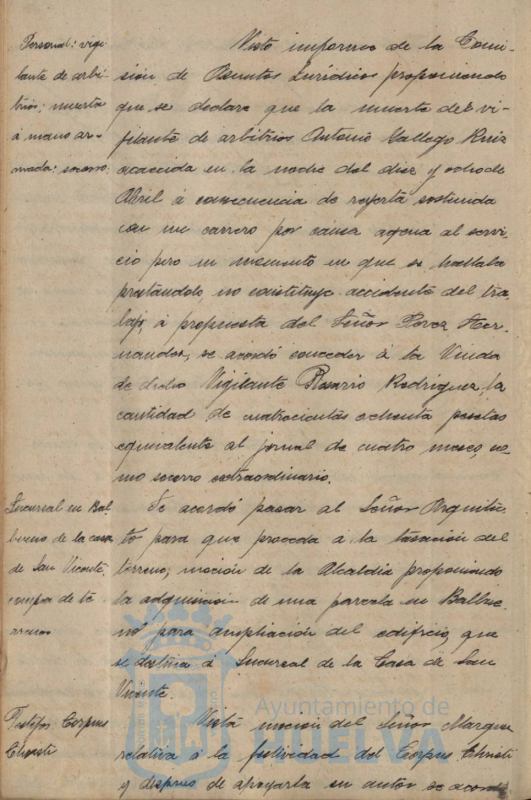 Personal: vigi-
lante de arbi-
trios; muerte
á mano ar-
mada: socorro
Visto informe de la Comi-
sión de Asuntos Jurídicos proponiendo
que se declare que la muerte del vi-
gilante de arbitrios Antonio Gallego Ruiz
acaecida en la noche del diez y ocho de
Abril á consecuencia de reyerta sostenida
con un carrero por causa agena al servi-
cio pero en momento en que se hallaba
prestándolo, no constituye accidente del tra-
bajo, á propuesta del Señor Perez Her-
nandez, se acordó conceder á la Viuda
de dicho Vigilante Rosario Rodriguez, la
cantidad de cuatrocientas ochenta pesetas
equivalente al jornal de cuatro meses, co-
mo socorro extraordinario.
Sucursal en Bal-
bueno de la casa
de San Vicente.
compra de te-
rreno
Se acordó pasar al Señor Arquitec-
to para que proceda a la tasación del
terreno, moción de la Alcaldía proponiendo
la adquisicion de una parcela en Balbue-
no para ampliación del edificio que
se destina á Sucursal de la Casa de San
Vicente.
Festejos Corpus
Christi
Vista moción del Señor Marquez
relativa á la festividad del Corpus Christi
y despues de apoyarla su autor se acordó
Ayuntamiento de
HUELVA